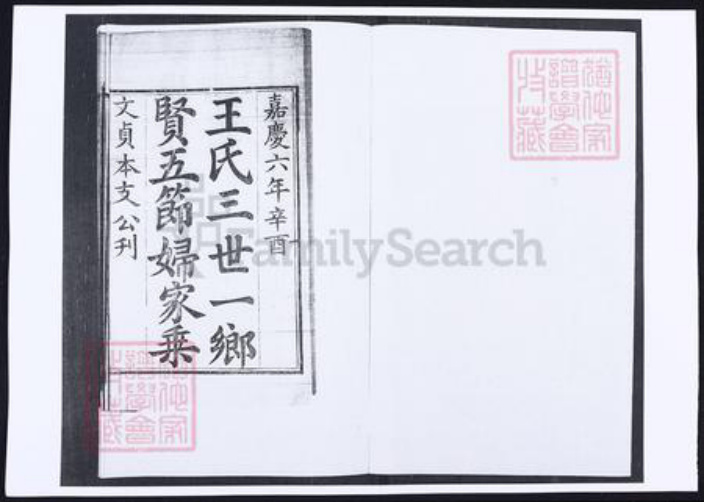 嘉慶六年辛酉
王氏三世一鄉
賢五節婦家乗
文貞本支公刋
FamilySearch
猶他家
譜學會
特藏
猶他家
譜學會
特藏